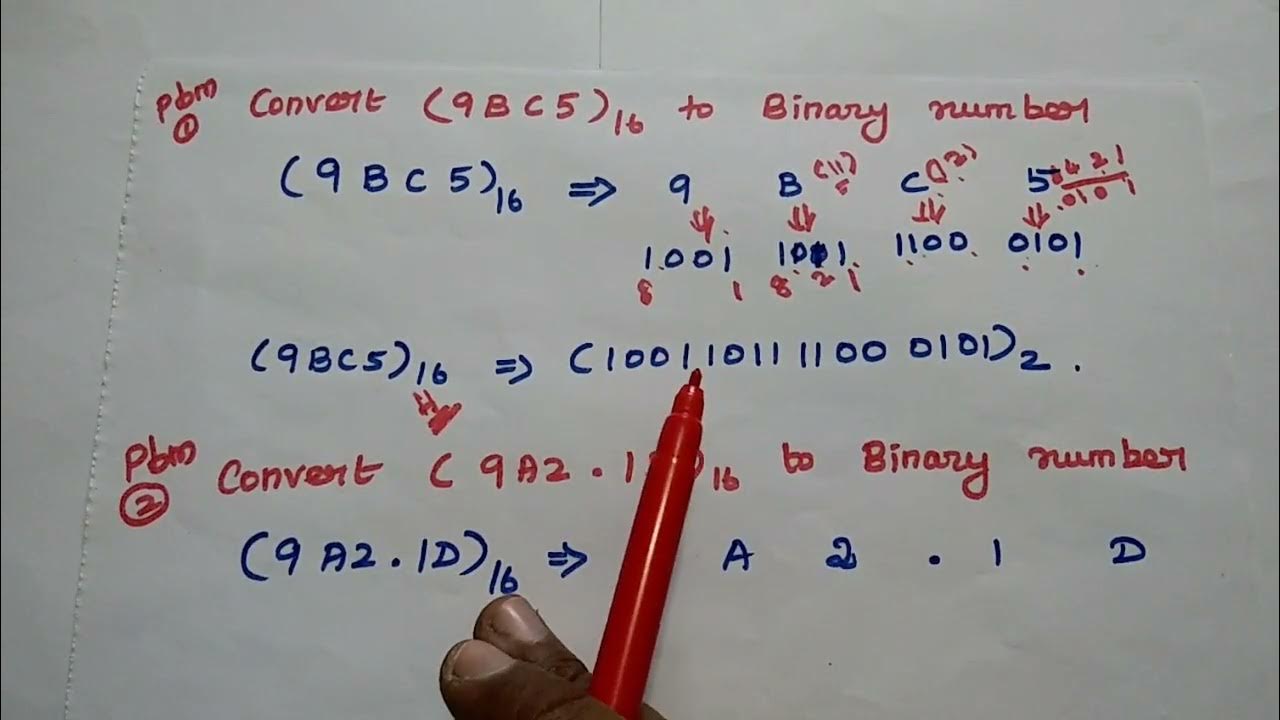 Pbm ① Convert (9BC5)₁₆ to Binary number
(9 B C 5)₁₆ ⇒ 9 B (11) C (12) 5 8 4 2 1
0 1 0 1
⇓ ⇓ ⇓ ⇓
1001 1011 1100 0101
8 1 8 2 1
(9BC5)₁₆ ⇒ (1001 1011 1100 0101)₂ .
Pbm ② Convert ( 9A2 . 1 )₁₆ to Binary number
(9 A2 . 1D)₁₆ ⇒ A 2 . 1 D